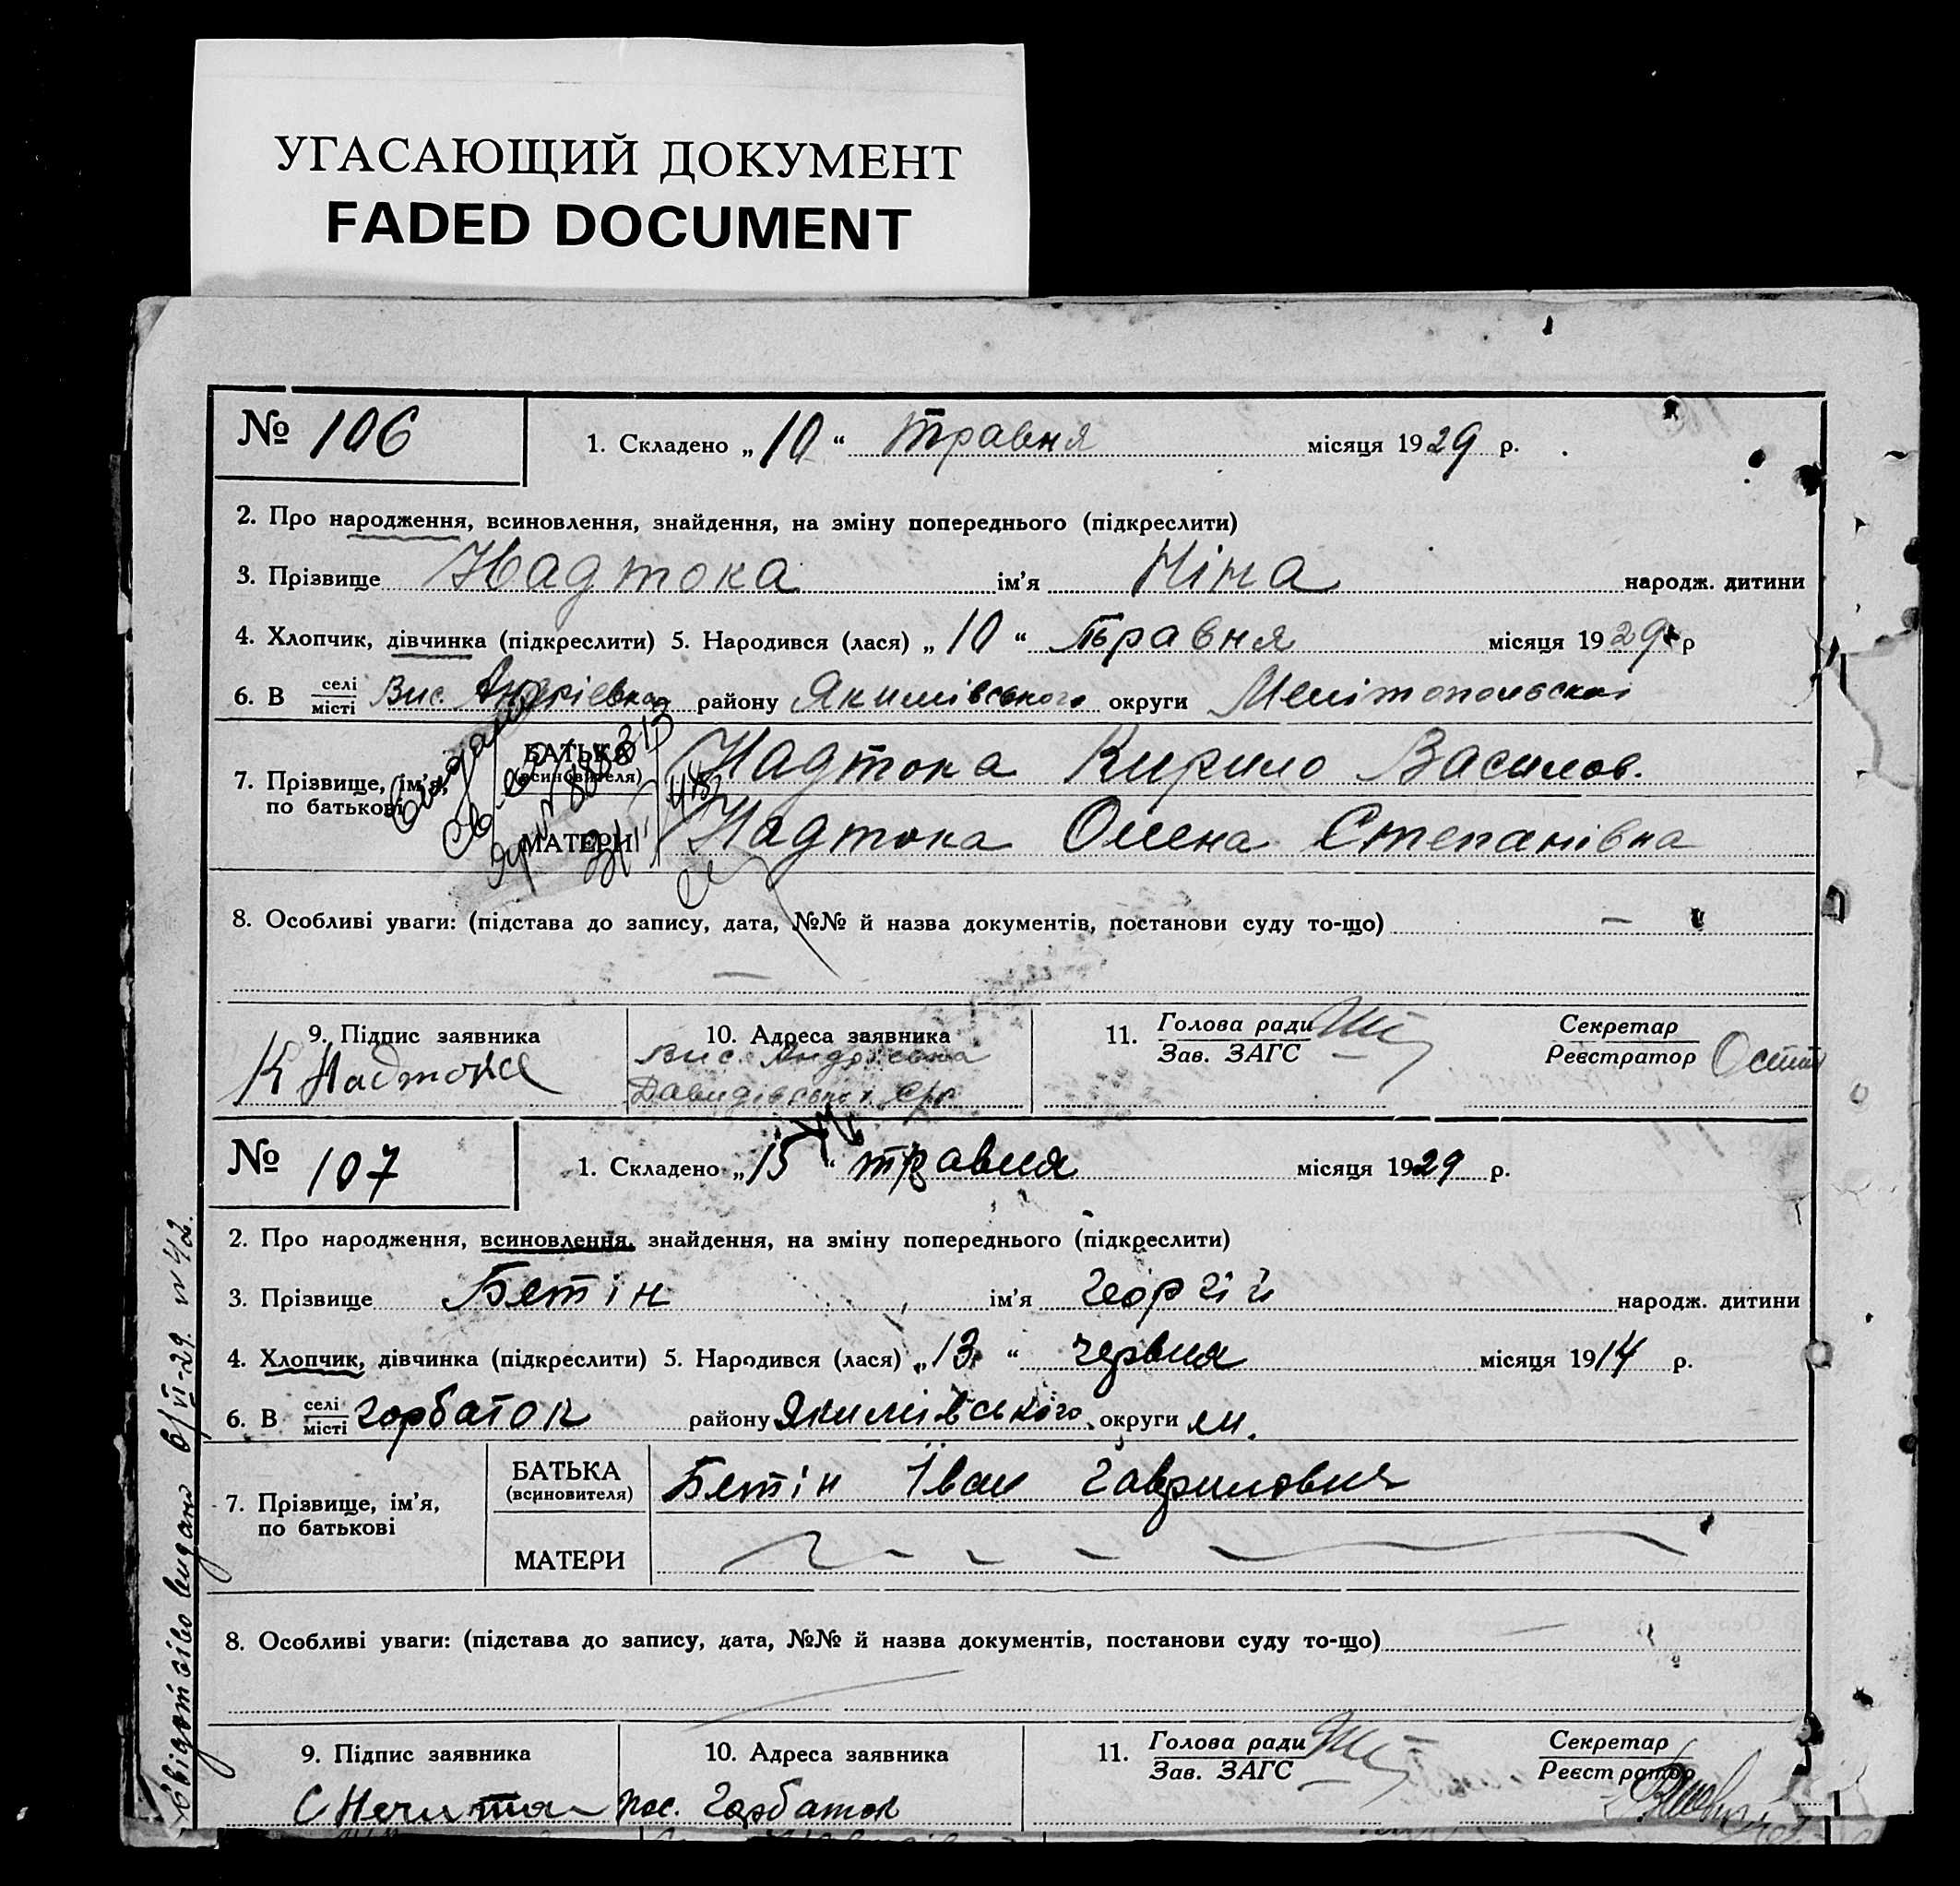 УГАСАЮЩИЙ ДОКУМЕНТ
FADED DOCUMENT
№ 106
1. Складено „ 10 “ травня місяця 1929 р.
2. Про народження, всиновлення, знайдення, на зміну попереднього (підкреслити)
3. Прізвище Надтока ім'я Ніна народж. дитини
4. Хлопчик, дівчинка (підкреслити) 5. Народився (лася) „ 10 “ травня місяця 1929 р
6. В селі місті Вис. Андріевка району Якимівського округи Мелітопольскої
7. Прізвище, ім'я, по батькові
БАТЬКА (всиновителя) Надтока Кирило Василов.
МАТЕРИ Надтока Олена Степанівна
8. Особливі уваги: (підстава до запису, дата, №№ й назва документів, постанови суду то-що) —
—
9. Підпис заявника 10. Адреса заявника 11. Голова ради Зав. ЗАГС Секретар Реєстратор
К Надтока Вис. Андрієвка
Давидівської с/р
№ 107
1. Складено „ 15 “ травня місяця 1929 р.
2. Про народження, всиновлення, знайдення, на зміну попереднього (підкреслити)
3. Прізвище Бетін ім'я Георгій народж. дитини
4. Хлопчик, дівчинка (підкреслити) 5. Народився (лася) „ 13 “ червня місяця 1914 р.
6. В селі місті Горбаток району Якимівського округи М.
7. Прізвище, ім'я, по батькові
БАТЬКА (всиновителя) Бетін Іван Гаврилович
МАТЕРИ
8. Особливі уваги: (підстава до запису, дата, №№ й назва документів, постанови суду то-що)
9. Підпис заявника 10. Адреса заявника 11. Голова ради Зав. ЗАГС Секретар Реєстратор
пос. Горбаток
Свідотсвіво видано 6/VI-29.